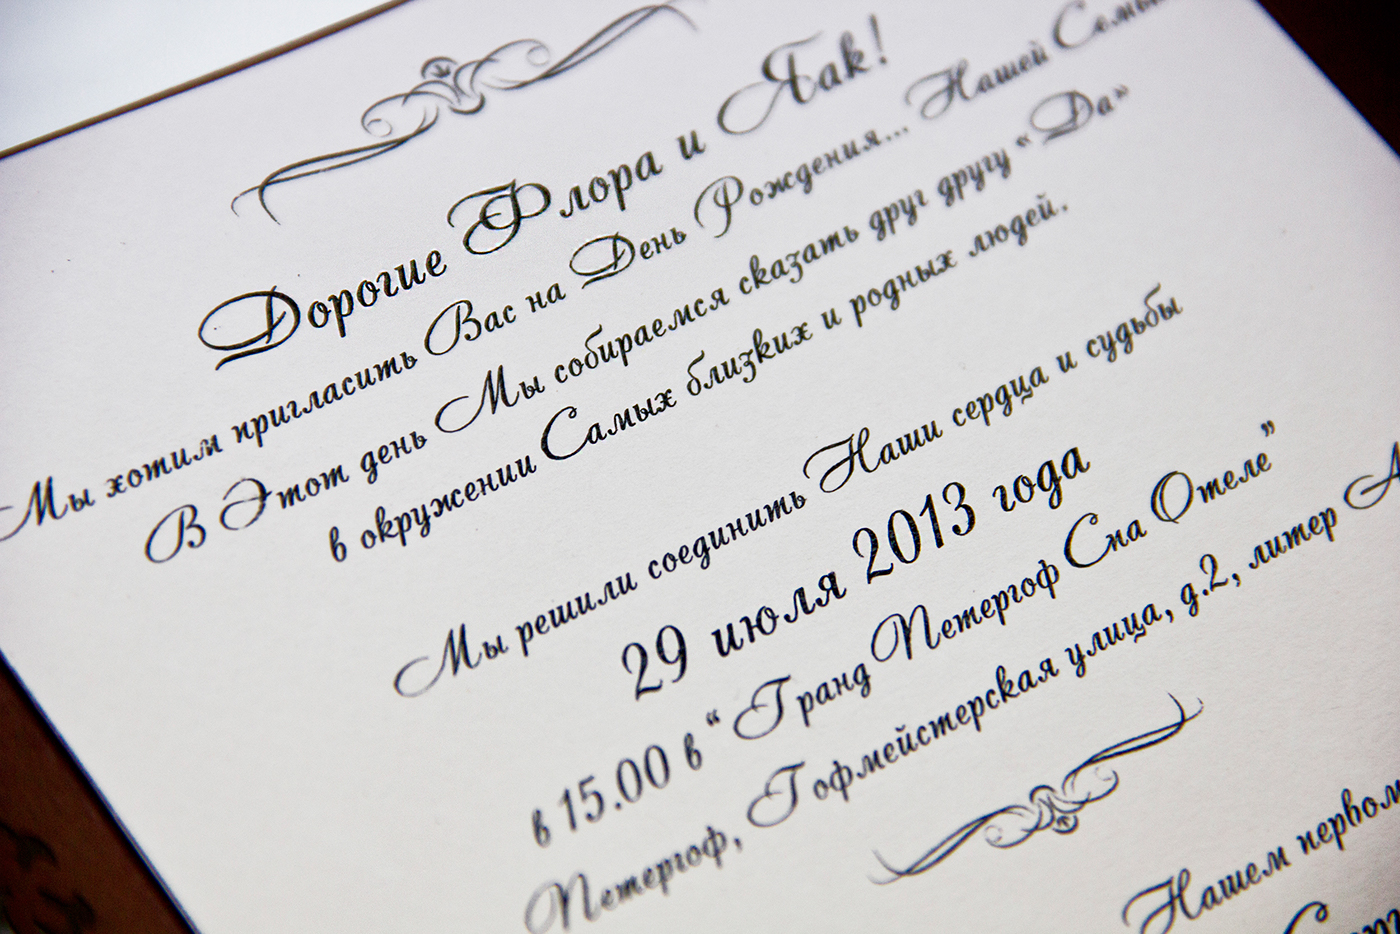 Дорогие Флора и Как!
Мы хотим пригласить Вас на День Рождения... Нашей Семьи
В Этот день Мы собираемся сказать друг другу “Да”
в окружении Самых близких и родных людей.
Мы решили соединить Наши сердца и судьбы
29 июля 2013 года
в 15.00 в “Гранд Петергоф Спа Отеле”
Петергоф, Гофмейстерская улица, д.2, литер А
Нашем первом